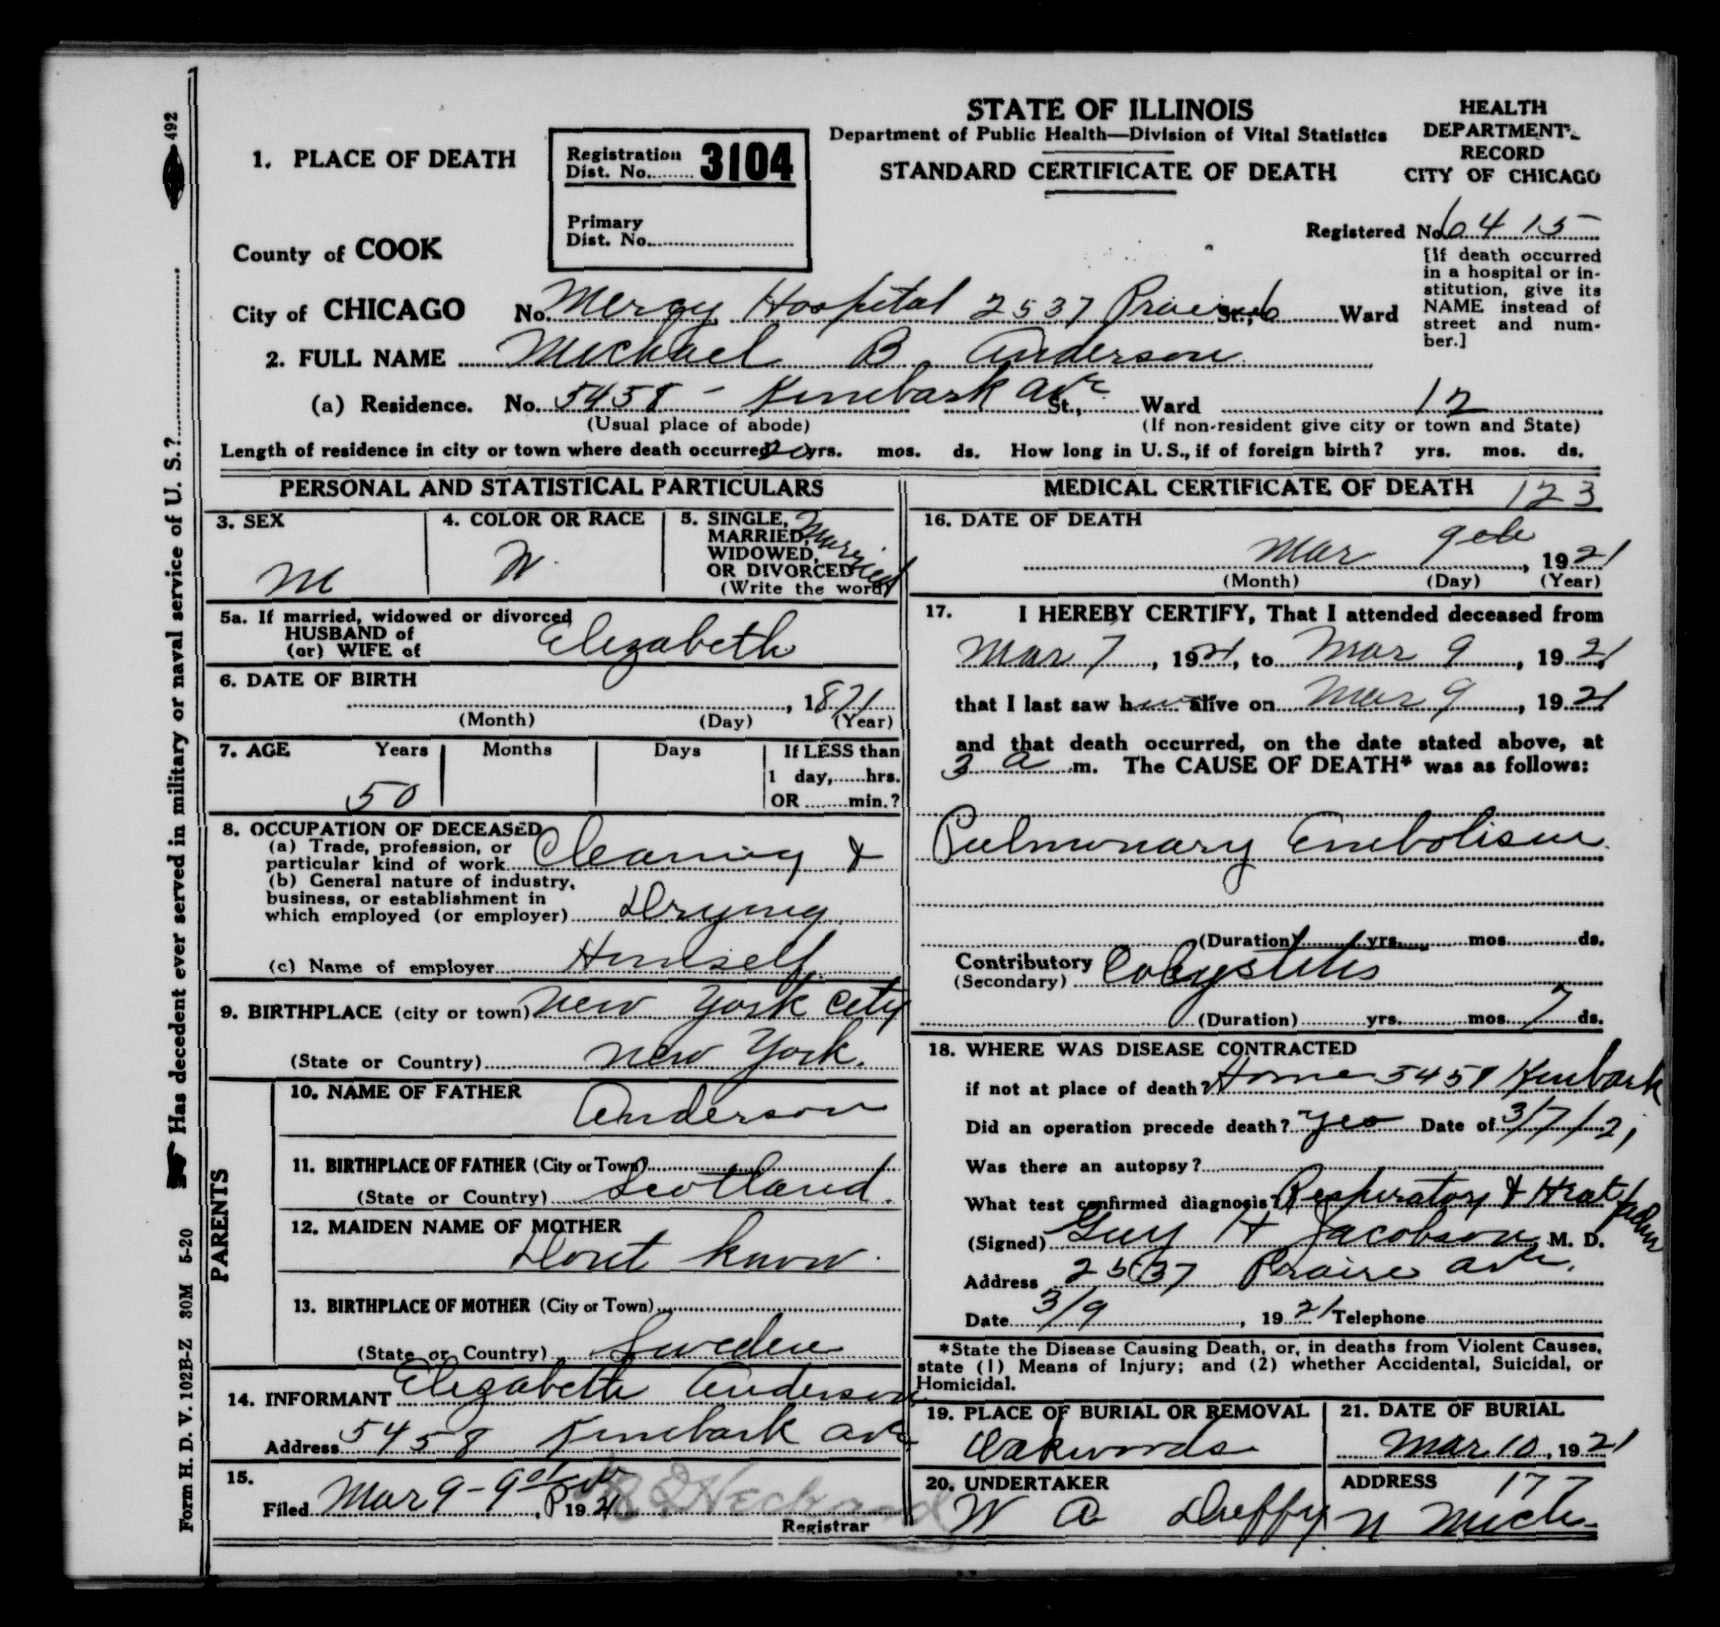 STATE OF ILLINOIS
Department of Public Health—Division of Vital Statistics
STANDARD CERTIFICATE OF DEATH
HEALTH
DEPARTMENT
RECORD
CITY OF CHICAGO
1. PLACE OF DEATH
Registration
Dist. No. 3104
Primary
Dist. No.
Registered No. 6415
[If death occurred
in a hospital or in-
stitution, give its
NAME instead of
street and num-
ber.]
County of COOK
City of CHICAGO No. Mercy Hospital 2537 Prairie St., 6 Ward
2. FULL NAME Michael B Anderson
(a) Residence. No. 5458 - Kimbark Ave St., Ward 12
(Usual place of abode) (If non-resident give city or town and State)
Length of residence in city or town where death occurred 20 yrs. mos. ds. How long in U. S., if of foreign birth? yrs. mos. ds.
PERSONAL AND STATISTICAL PARTICULARS
3. SEX
M
4. COLOR OR RACE
W.
5. SINGLE,
MARRIED,
WIDOWED,
OR DIVORCED
(Write the word)
Married
5a. If married, widowed or divorced
HUSBAND of
(or) WIFE of Elizabeth
6. DATE OF BIRTH
, 1871
(Month) (Day) (Year)
7. AGE Years Months Days If LESS than
1 day, hrs.
OR min.?
50
8. OCCUPATION OF DECEASED
(a) Trade, profession, or
particular kind of work Cleaning &
(b) General nature of industry,
business, or establishment in
which employed (or employer) Drying
(c) Name of employer Himself
9. BIRTHPLACE (city or town) New York City
(State or Country) New York.
PARENTS
10. NAME OF FATHER
Anderson
11. BIRTHPLACE OF FATHER (City or Town)
(State or Country) Scotland.
12. MAIDEN NAME OF MOTHER
Dont know.
13. BIRTHPLACE OF MOTHER (City or Town)
(State or Country) Sweden
14. INFORMANT Elizabeth Anderson
Address 5458 Kimbark Ave
15.
Filed Mar 9 - 1921
Registrar
MEDICAL CERTIFICATE OF DEATH 123
16. DATE OF DEATH
Mar 9th, 1921
(Month) (Day) (Year)
17. I HEREBY CERTIFY, That I attended deceased from
Mar 7, 1921, to Mar 9, 1921
that I last saw him alive on Mar 9, 1921
and that death occurred, on the date stated above, at
3 a m. The CAUSE OF DEATH* was as follows:
Pulmonary Embolism
(Duration) yrs. mos. ds.
Contributory
(Secondary)
(Duration) yrs. mos. 7 ds.
18. WHERE WAS DISEASE CONTRACTED
if not at place of death? Home 5458 Kimbark
Did an operation precede death? Yes Date of 3/7/21
Was there an autopsy?
What test confirmed diagnosis? Respiratory &
(Signed) Guy H Jacobson, M. D.
Address 2537 Prairie Ave.
Date 3/9, 1921 Telephone
*State the Disease Causing Death, or, in deaths from Violent Causes,
state (1) Means of Injury; and (2) whether Accidental, Suicidal, or
Homicidal.
19. PLACE OF BURIAL OR REMOVAL
Oakwoods
21. DATE OF BURIAL
Mar 10, 1921
20. UNDERTAKER
W A Duffy
ADDRESS 177
N Mich.
Form H. D. V. 102B-Z 30M 5-20
Has decedent ever served in military or naval service of U. S.?
492